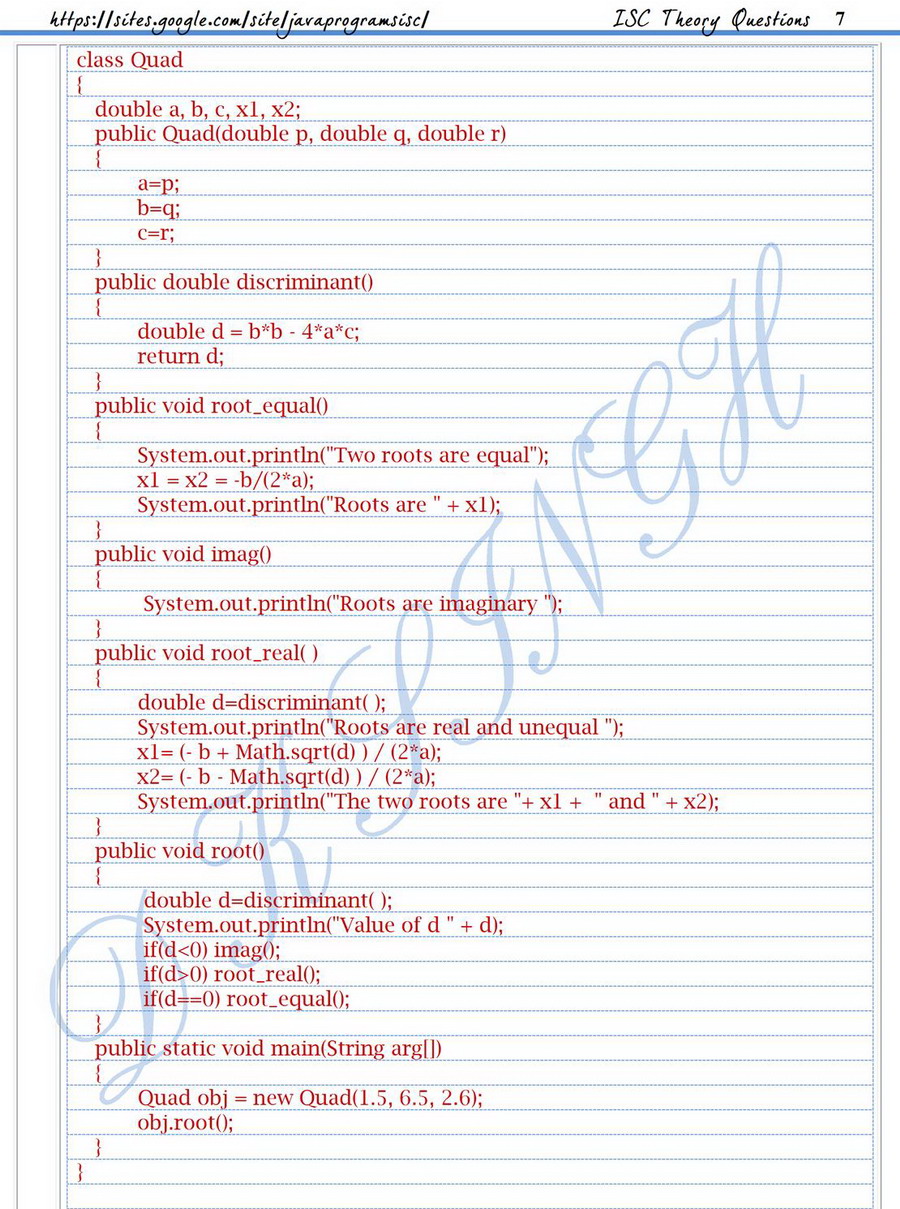 https://sites.google.com/site/javaprogramsisc/ ISC Theory Questions 7
class Quad
{
double a, b, c, x1, x2;
public Quad(double p, double q, double r)
{
a=p;
b=q;
c=r;
}
public double discriminant()
{
double d = b*b - 4*a*c;
return d;
}
public void root_equal()
{
System.out.println("Two roots are equal");
x1 = x2 = -b/(2*a);
System.out.println("Roots are " + x1);
}
public void imag()
{
System.out.println("Roots are imaginary ");
}
public void root_real( )
{
double d=discriminant( );
System.out.println("Roots are real and unequal ");
x1= (- b + Math.sqrt(d) ) / (2*a);
x2= (- b - Math.sqrt(d) ) / (2*a);
System.out.println("The two roots are "+ x1 +  " and " + x2);
}
public void root()
{
double d=discriminant( );
System.out.println("Value of d " + d);
if(d<0) imag();
if(d>0) root_real();
if(d==0) root_equal();
}
public static void main(String arg[])
{
Quad obj = new Quad(1.5, 6.5, 2.6);
obj.root();
}
}
D K SINGH